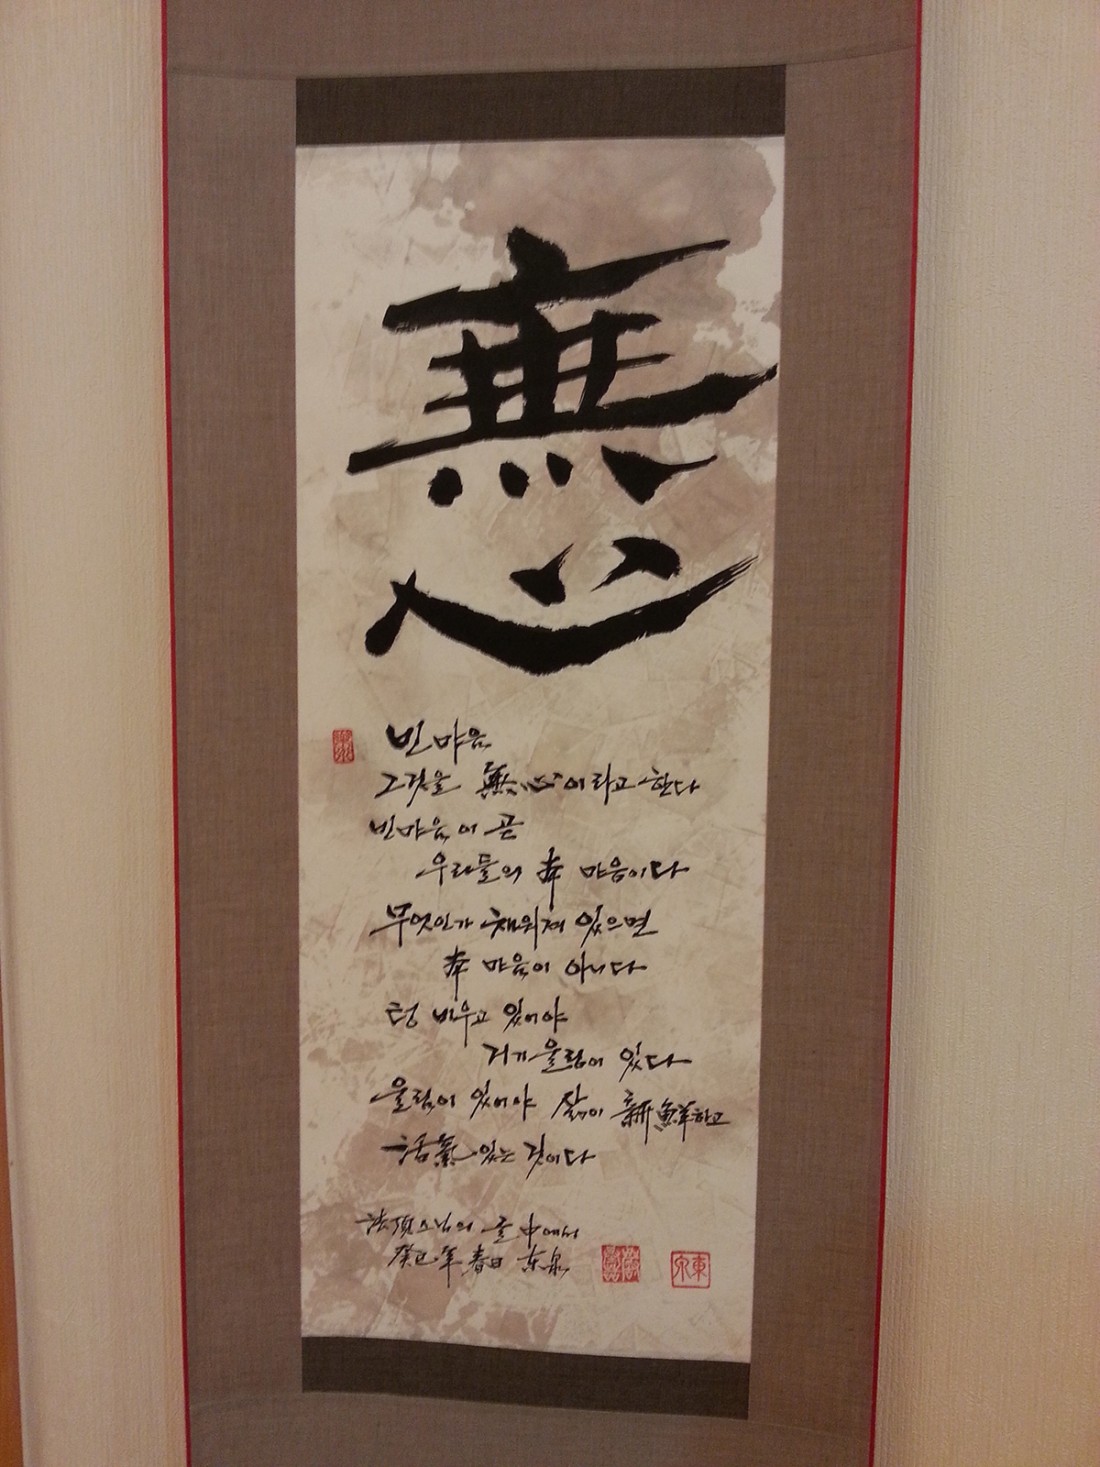 無
心
빈마음
그것을 無心이라고 한다
빈마음이 곧
우리들의 本 마음이다
무엇인가 채워져 있으면
本 마음이 아니다
텅 비우고 있어야
거기 울림이 있다
울림이 있어야 삶이 新鮮하고
活氣있는 것이다
法頂스님의 글 中에서
癸巳年 春日 东泉
東泉